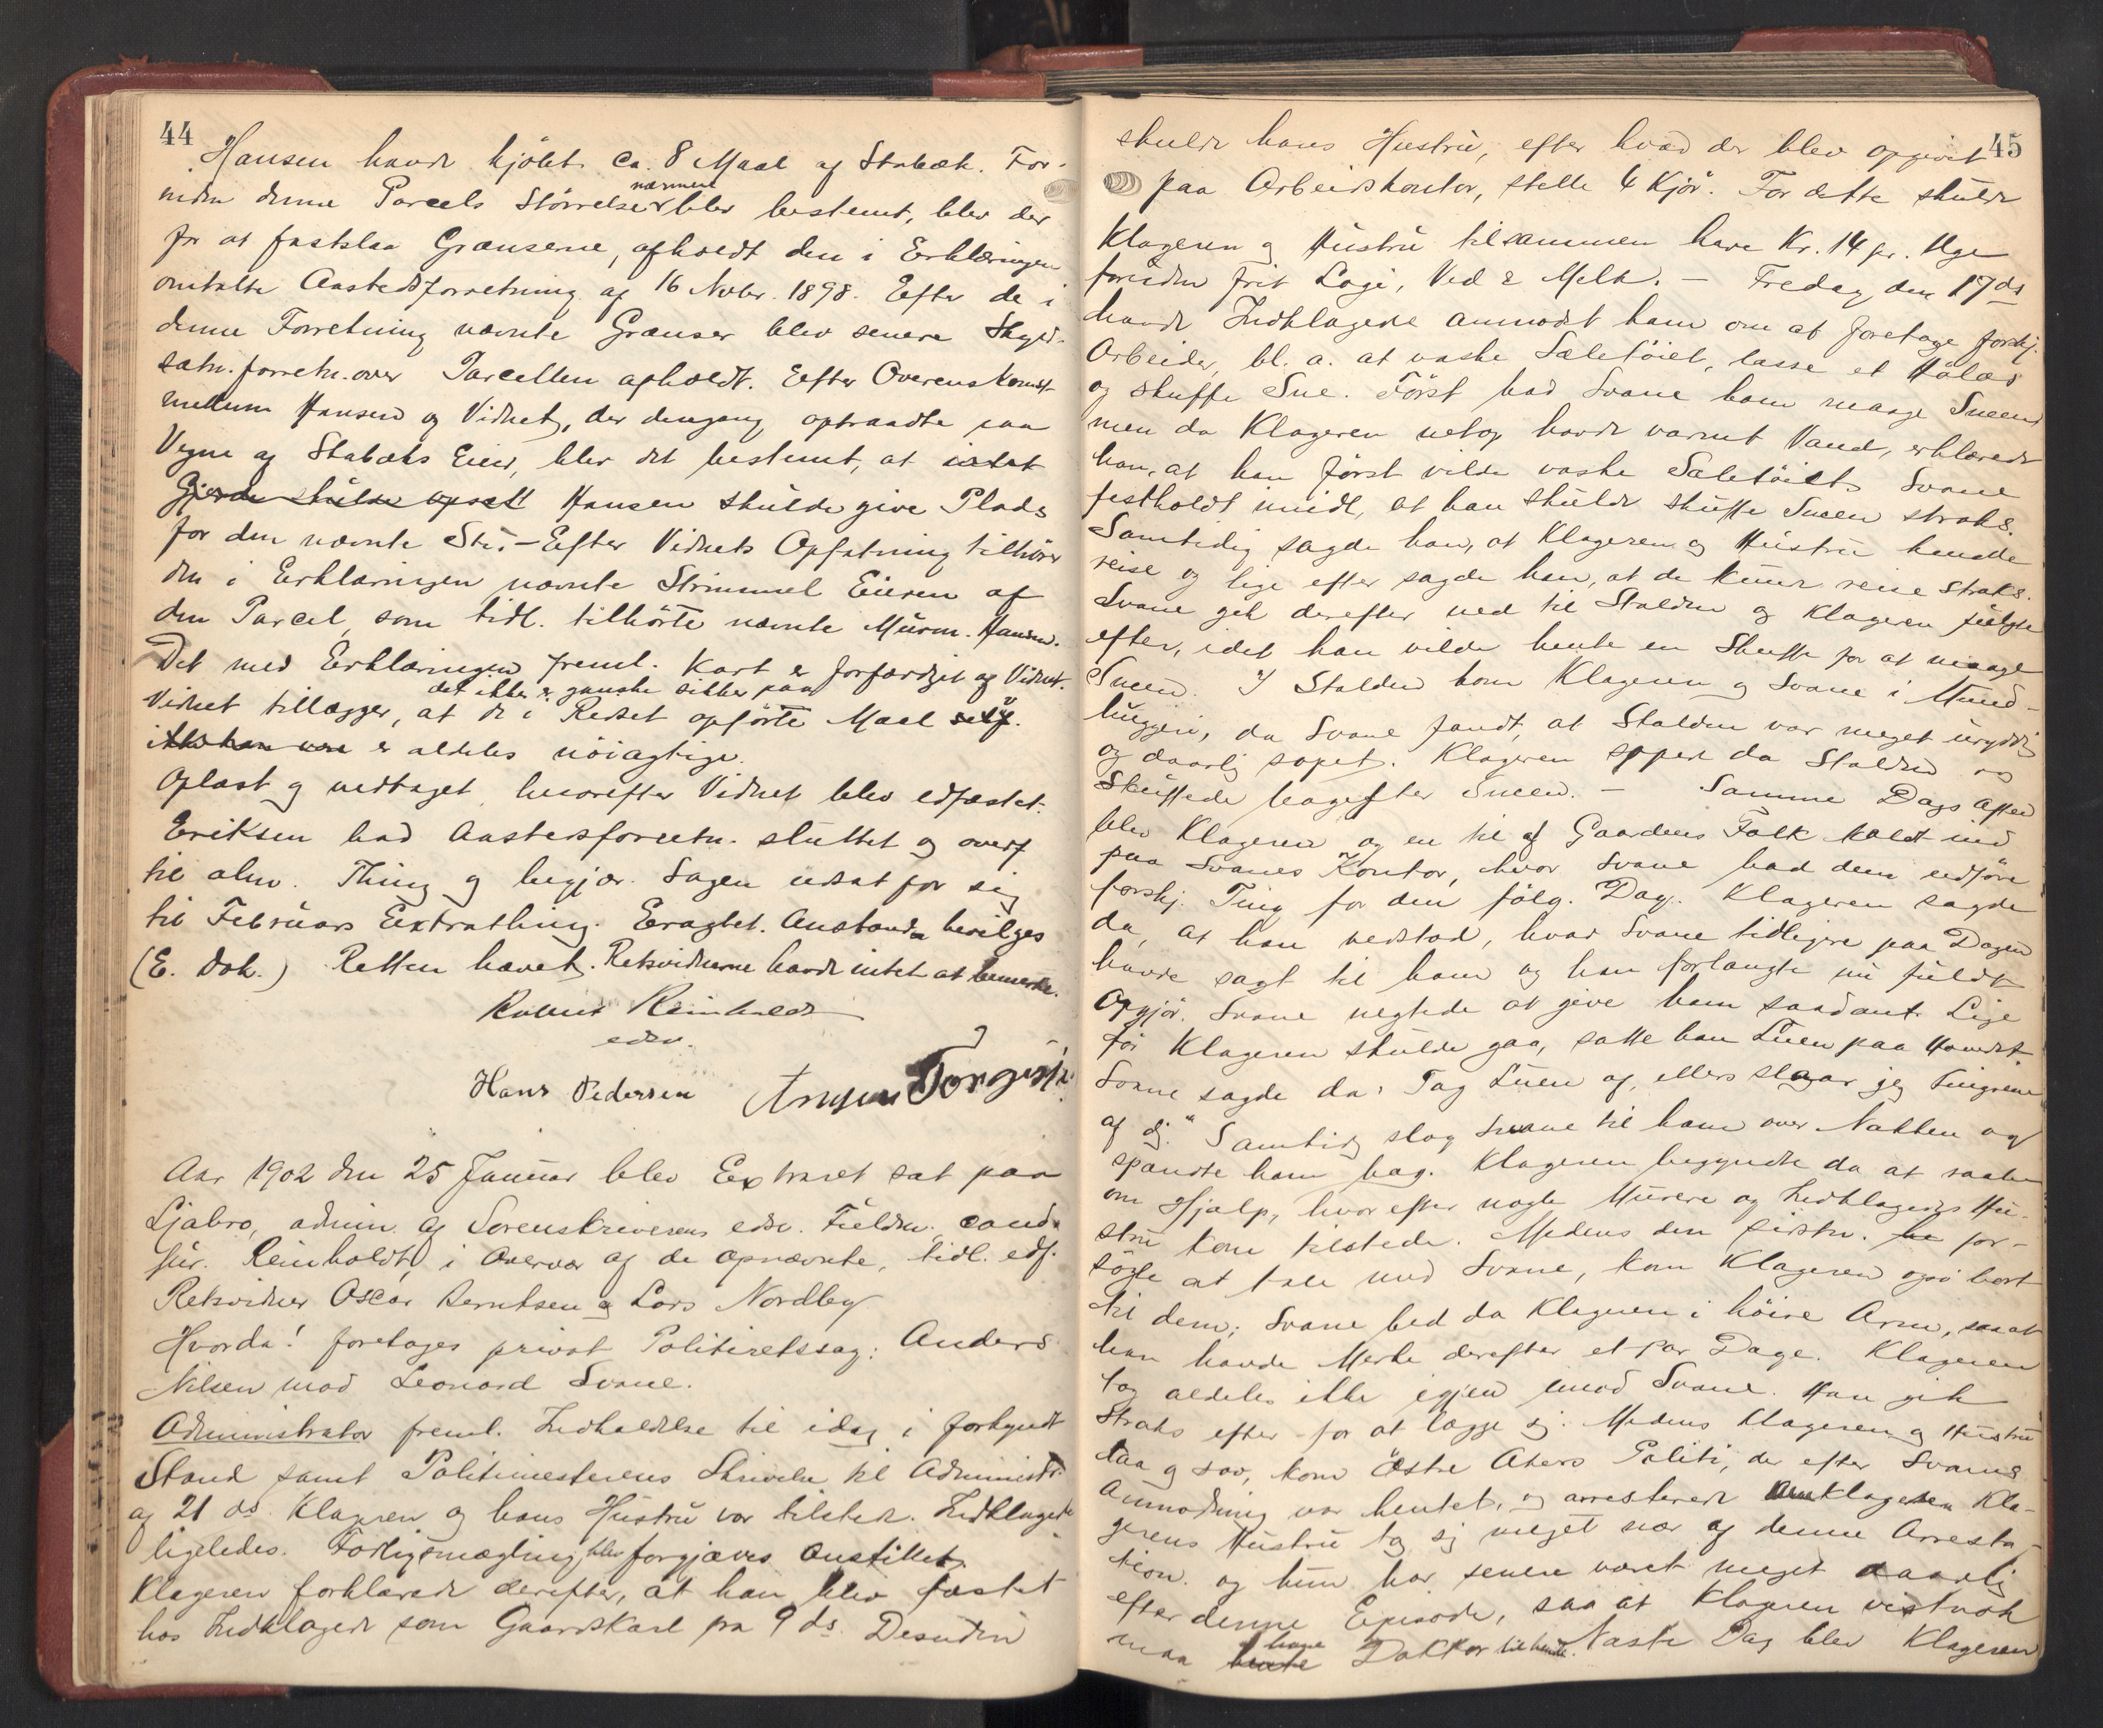 44
Hansen havde kjöbt ca. 8 Maal af Stabæk. For-
inden denne Parcels Störrelse nærmere blev bestemt, blev der
for at fastslaa Grænserne, afholdt den i Erklæringen
omtalte Aastedsforretning af 16 Novbr. 1898. Efter de i
denne Forretning nævnte Grænser blev senere Skyld-
sætn.forretn. over Parcellen afholdt. Efter Overenskomst
mellem Hansen og Vidnet, der dengang optraadte paa
Vegne af Stabæks Eier, blev det bestemt, at intet
Gjerde skulde opsatt Hansen skulde give Plads
for den nævnte Sti. – Efter Vidnets Opfatning tilhörer
den i Erklæringen nævnte Strimmel Eieren af
den Parcel, som tidl. tilhörte nævnte Murm. Hansen.
Det med Erklæringen freml. Kart er forfærdiget af Vidnet.
Vidnet tillægger, at det ikke er ganske sikker paa de i Redset opförte Maal
ikke kan være er aldeles nöiagtige.
Oplæst og vedtaget, hvorefter Vidnet blev edfæstet.
Eriksen bad Aastedsforretn. sluttet og overf
til alm. Thing og begjær. Sagen udsat for sig
til Februars Extrathing. Eragtet. Anstand bevilges
(E. Dok.) Retten hævet. Retsvidnerne havde intet at bemerke.
Robert Reinholdt
edsv.
Hans Pedersen
Aar 1902 den 25 Januar blev Extraret sat paa
Ljabro, admin. af Sorenskriverens edsv. Fuldm., cand.
jur. Reinholdt, i Overvær af de opnævnte, tidl. edf.
Retsvidner Oscar Berntsen og Lars Nordby
Hvorda! foretages privat Politiretssag: Anders
Nilsen mod Leonard Svane.
Administrator freml. Indkaldelse til idag i forkyndt
Stand samt Politimesterens Skrivelse til Administr.
af 21 ds. Klageren og hans Hustru var tilstede. Indklagede
ligeledes. Forligsmægling blev forgjæves anstillet.
Klageren forklarede derefter, at han blev fæstet
hos Indklagede som Gaardskarl fra 9 ds. Desuden
45
skulde hans Hustru, efter hvad der blev opgivet
paa Arbeidskontor, stelle 4 Kjör. For dette skulde
Klageren og Hustru tilsammen have Kr. 14 pr. Uge
foruden frit Logi, Ved & Melk. – Fredag den 17 ds
havde Indklagede anmodet ham om at foretage forskj.
Arbeider, bl. a. at vaske Sæletöiet, lasse et Hölæs
og skuffe Sne. Först bad Svane ham maage Sneen
men da Klageren netop havde varmt Vand, erklærede
han, at han först vilde vaske Sæletöiet. Svane
fastholdt imidl, at han skulde skuffe Sneen straks.
Samtidig sagde han, at Klageren og Hustru kunde
reise og lige efter sagde han, at de kunde reise straks.
Svane gik derefter ned til Stalden og Klageren fulgte
efter, idet han vilde hente en Skuffe for at maage
Sneen. I Stalden kom Klageren og Svane i Mund-
huggeri, da Svane fandt, at Stalden var meget uryddig
og daarlig sopet. Klageren soped da Stalden og
Skuffede bagefter Sneen. – Samme Dags Aften
blev Klageren og en til af Gaardens Folk kaldt ind
paa Svanes Kontor, hvor Svane bad dem udföre
forskj. Ting for den fölg. Dag. Klageren sagde
da, at han vedstod, hvad Svane tidligere paa Dagen
havde sagt til ham og han forlangte nu fuldt
Opgjör. Svane negtede at give ham saadant. Lige
för Klageren skulde gaa, satte han Luen paa Hovedet.
Svane sagde da: Tag Luen af, ellers slaar jeg Fingrene
af dig." Samtidig slog Svane til ham over Nakken og
spændte ham bag. Klageren begyndte da at raabe
om Hjælp, hvorefter nogle Murere og Indklagedes Hu-
stru kom tilstede. Medens den sidstn. for-
sögte at tale med Svane, kom Klageren også bort
til dem; Svane bed da Klageren i höire Arm, saa at
han havde Merke derefter et par Dage. Klageren
tog aldeles ikke igjen imod Svane. Han gik
straks efter for at lægge sig. Medens Klageren og Hustru
laa og sov, kom Östre Akers Politi, der efter Svanes
Anmodning var hentet, og arresterede Klageren. Kla-
gerens Hustru tog sig meget nær af denne Arresta-
tion og hun har senere været meget daarlig
efter denne Episode, saa at Klageren vistnok
maa hente have Doktor til hende. Næste Dag blev Klageren